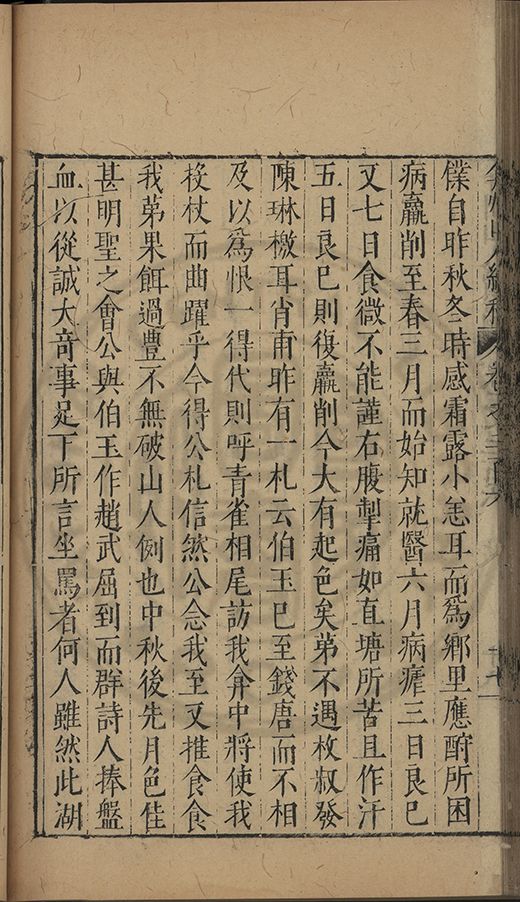 弇州山人續稿 卷之二百六 十七
僕自昨秋冬時感霜露小恙耳而爲鄉里應酧所困
病羸削至春三月而始知就醫六月病瘧三日良已
又七日食微不能謹右腹掣痛如直塘所苦且作汗
五日良已則復羸削今大有起色矣第不遇枚叔發
陳琳檄耳肖甫昨有一札云伯玉已至錢唐而不相
及以爲恨一得代則呼青雀相尾訪我弇中將使我
投杖而曲躍乎今得公札信然公念我至又推食食
我弟果餌過豊不無破山人例也中秋後先月色佳
甚明聖之會公與伯玉作趙武屈到而群詩人捧盤
血以從誠大奇事足下所言坐罵者何人雖然此湖